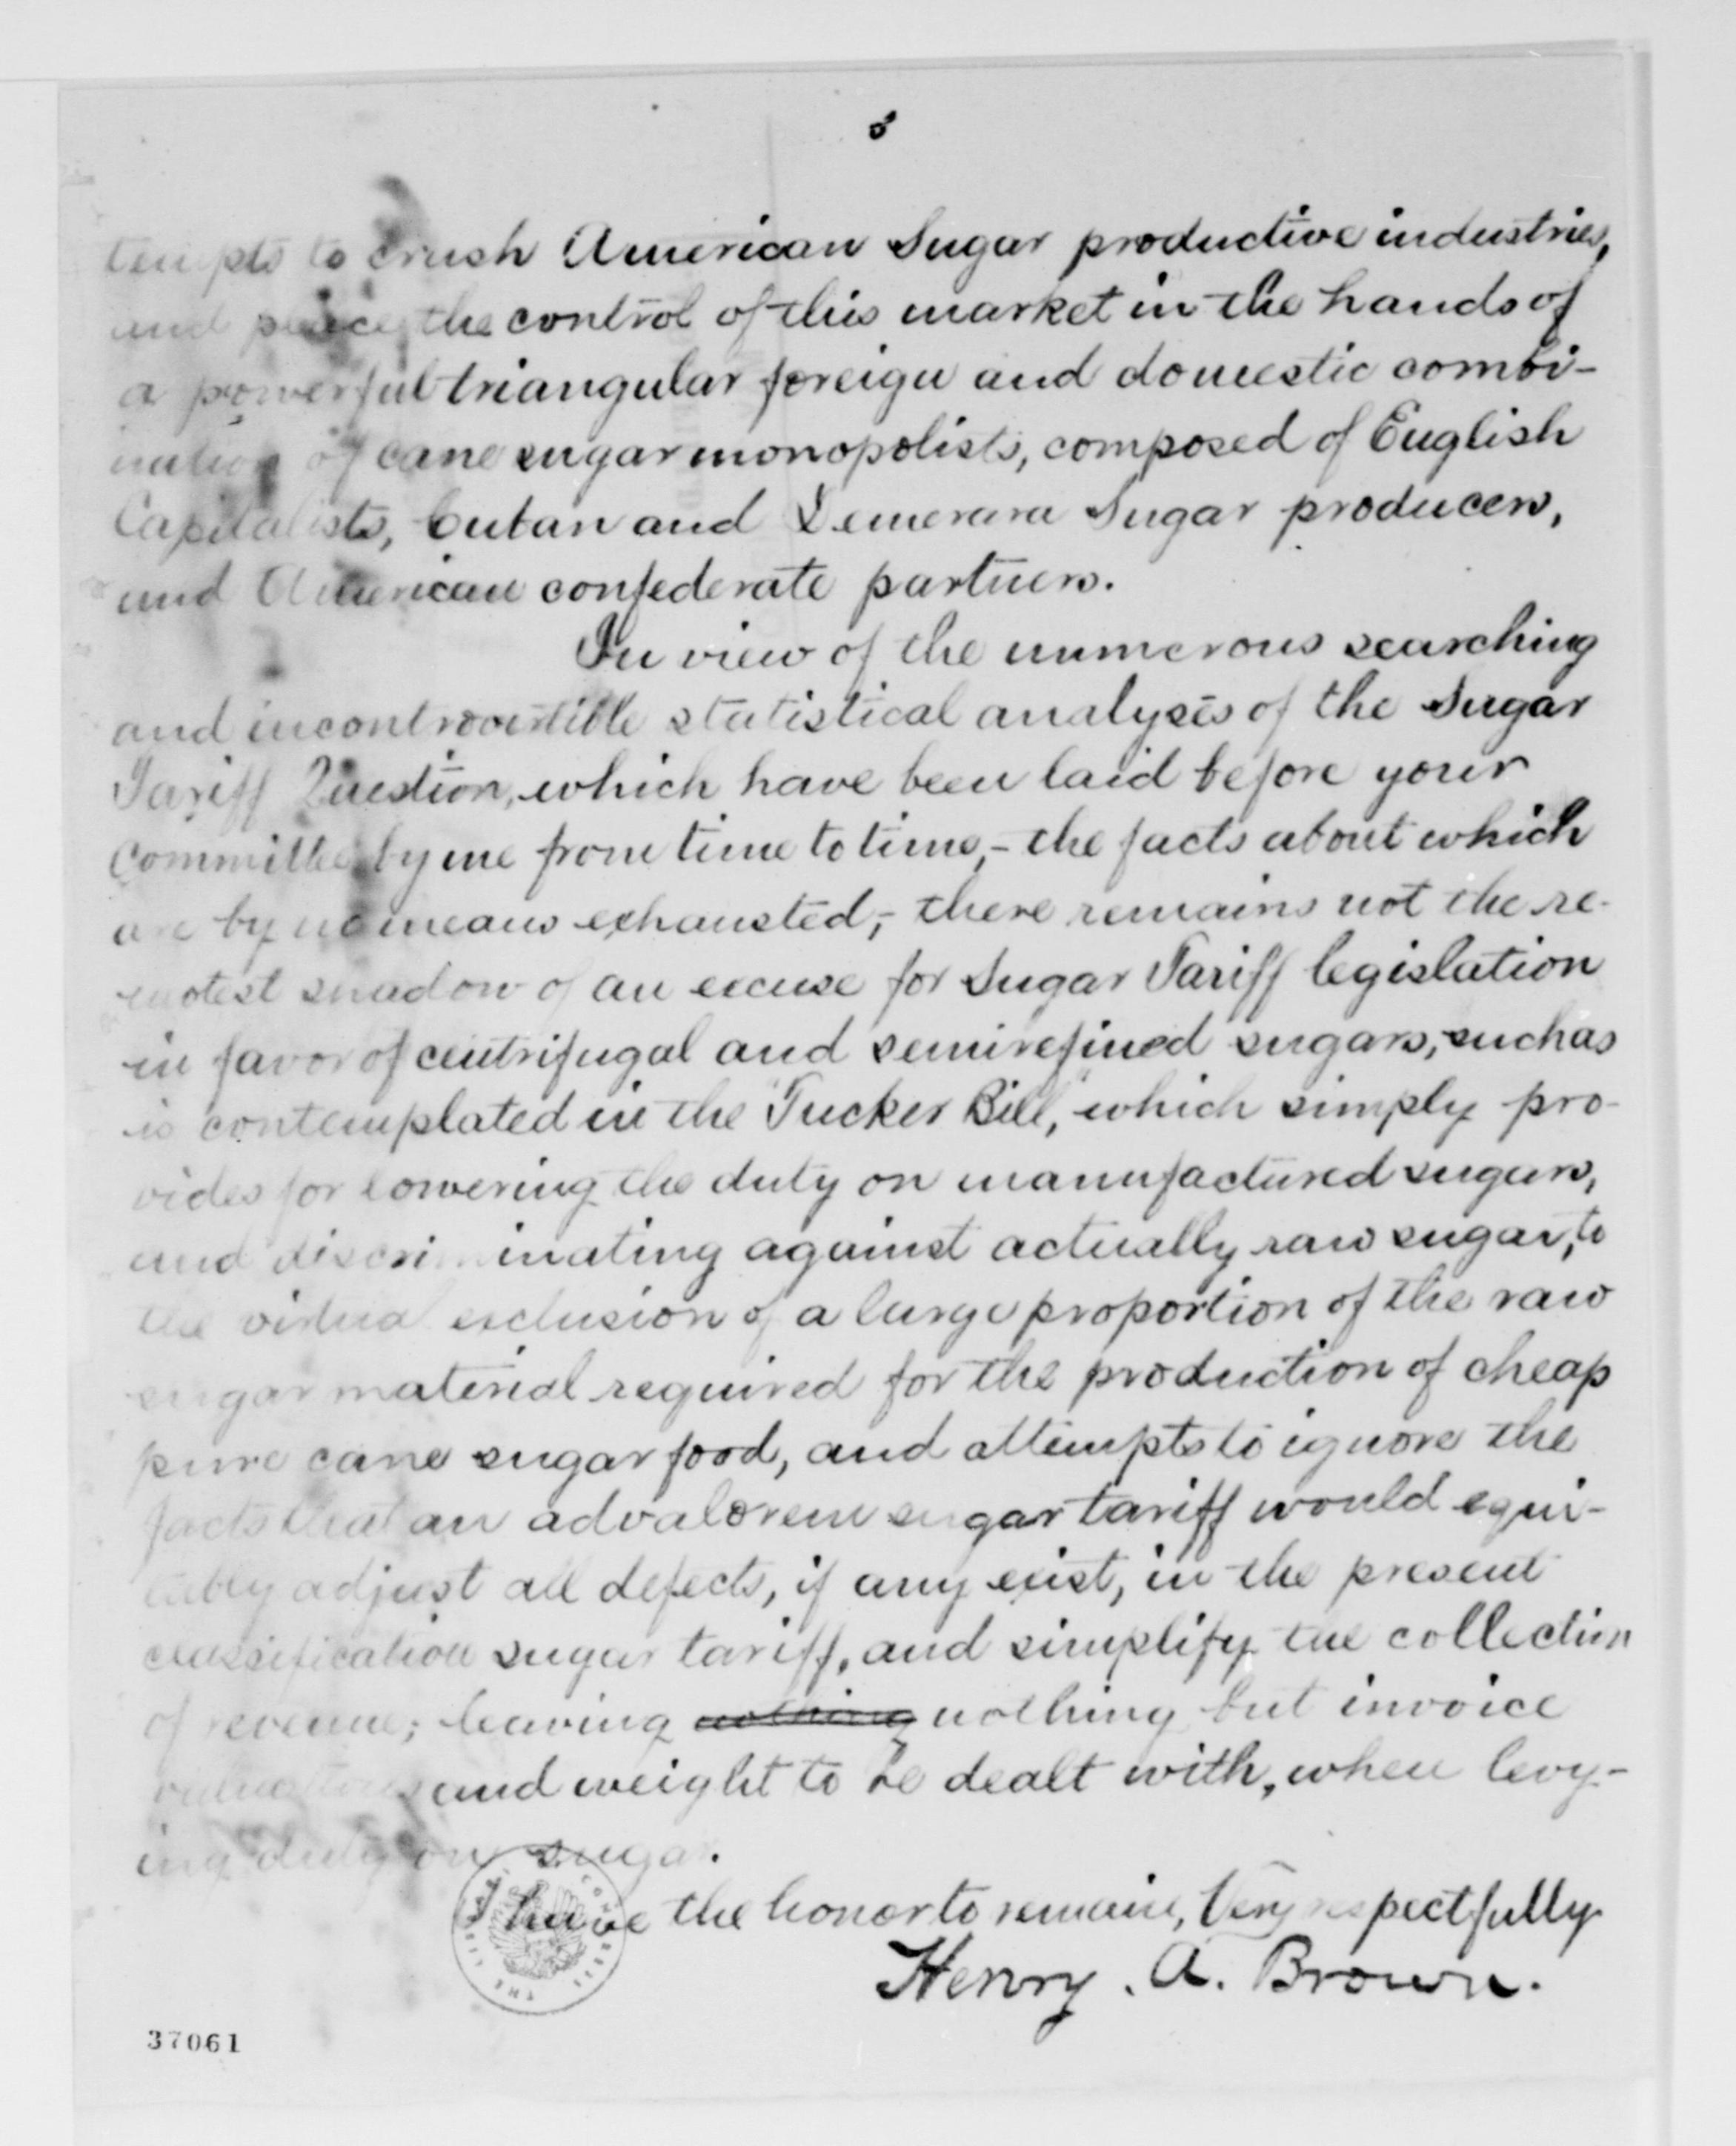 5
tempts to crush American Sugar productive industries,
and place the control of this market in the hands of
a powerful triangular foreign and domestic combi-
nation of cane sugar monopolists, composed of English
Capitalists, Cuban and Demerara Sugar producers,
and American confederate partners.
In view of the numerous searching
and incontrovertible statistical analyses of the Sugar
Tariff Question, which have been laid before your
Committee by me from time to time,- the facts about which
are by no means exhausted,- there remains not the re-
motest shadow of an excuse for Sugar Tariff legislation
in favor of centrifugal and semirefined sugars, such as
is contemplated in the "Tucker Bill," which simply pro-
vides for lowering the duty on manufactured sugars,
and discriminating against actually raw sugar, to
the virtual exclusion of a large proportion of the raw
sugar material required for the production of cheap
pure cane sugar food, and attempts to ignore the
facts that an advalorem sugar tariff would equi-
tably adjust all defects, if any exist, in the present
classification sugar tariff, and simplify the collection
of revenue; leaving nothing nothing but invoice
valuations and weight to be dealt with, when levy-
ing duty on sugar.
I have the honor to remain, Very respectfully
Henry. A. Brown.
37061